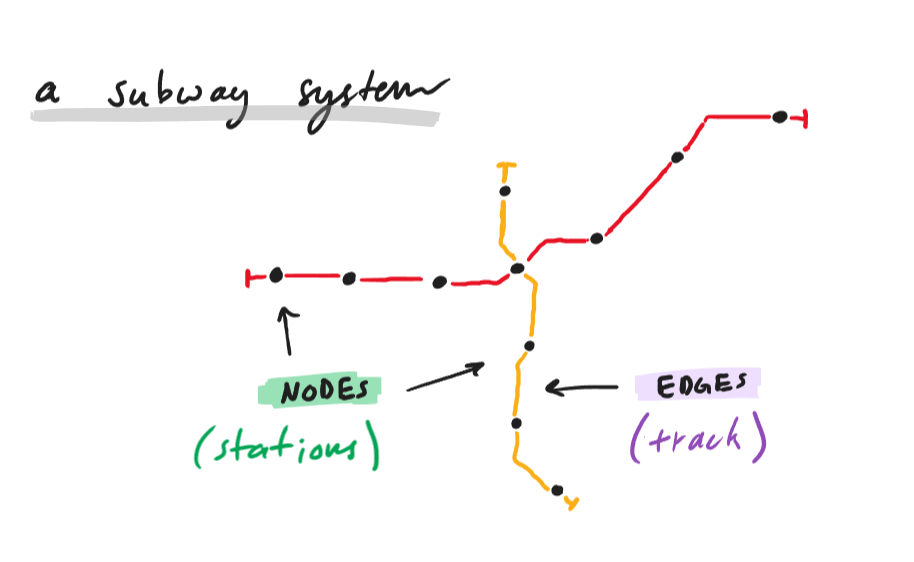 a subway system
NODES
(stations)
EDGES
(track)